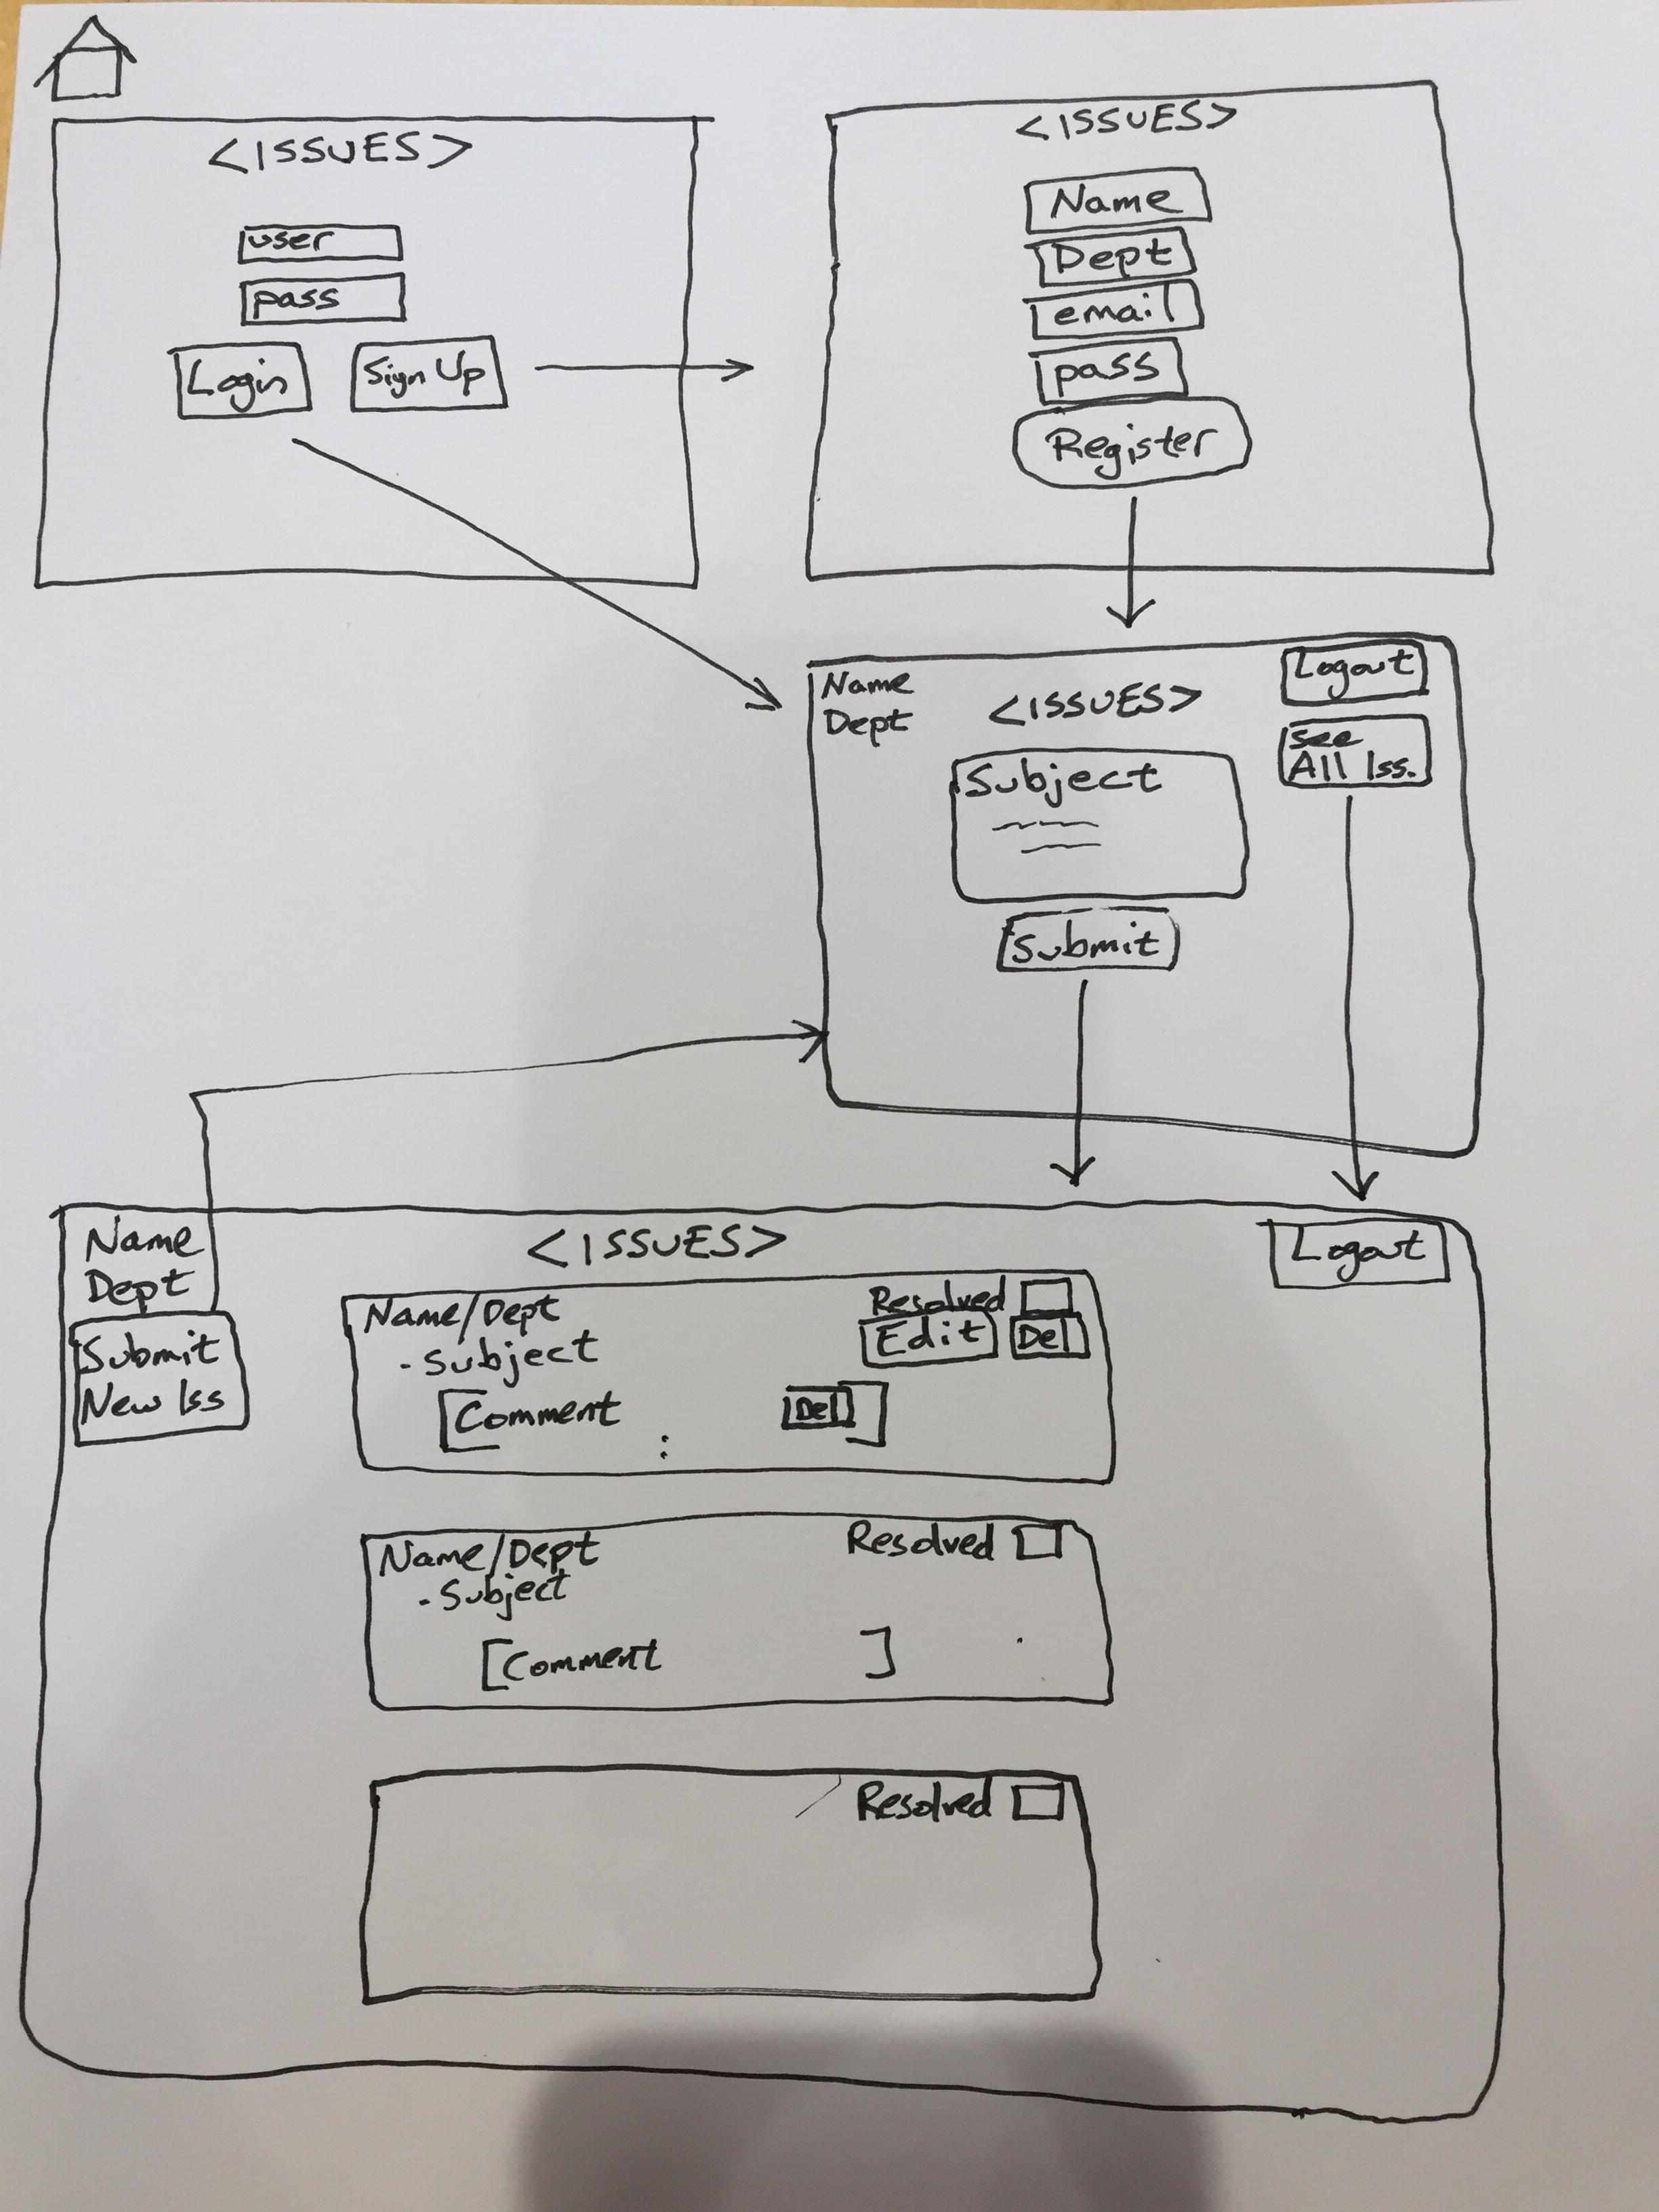 <ISSUES>
user
pass
Login
Sign Up
<ISSUES>
Name
Dept
email
pass
Register
Name
Dept
<ISSUES>
Logout
see
All Iss.
Subject
Submit
Name
Dept
Submit
New Iss
<ISSUES>
Logout
Name/Dept
Resolved
- Subject
Edit
Del
Comment
Del
Name/Dept
Resolved
- Subject
Comment
Resolved